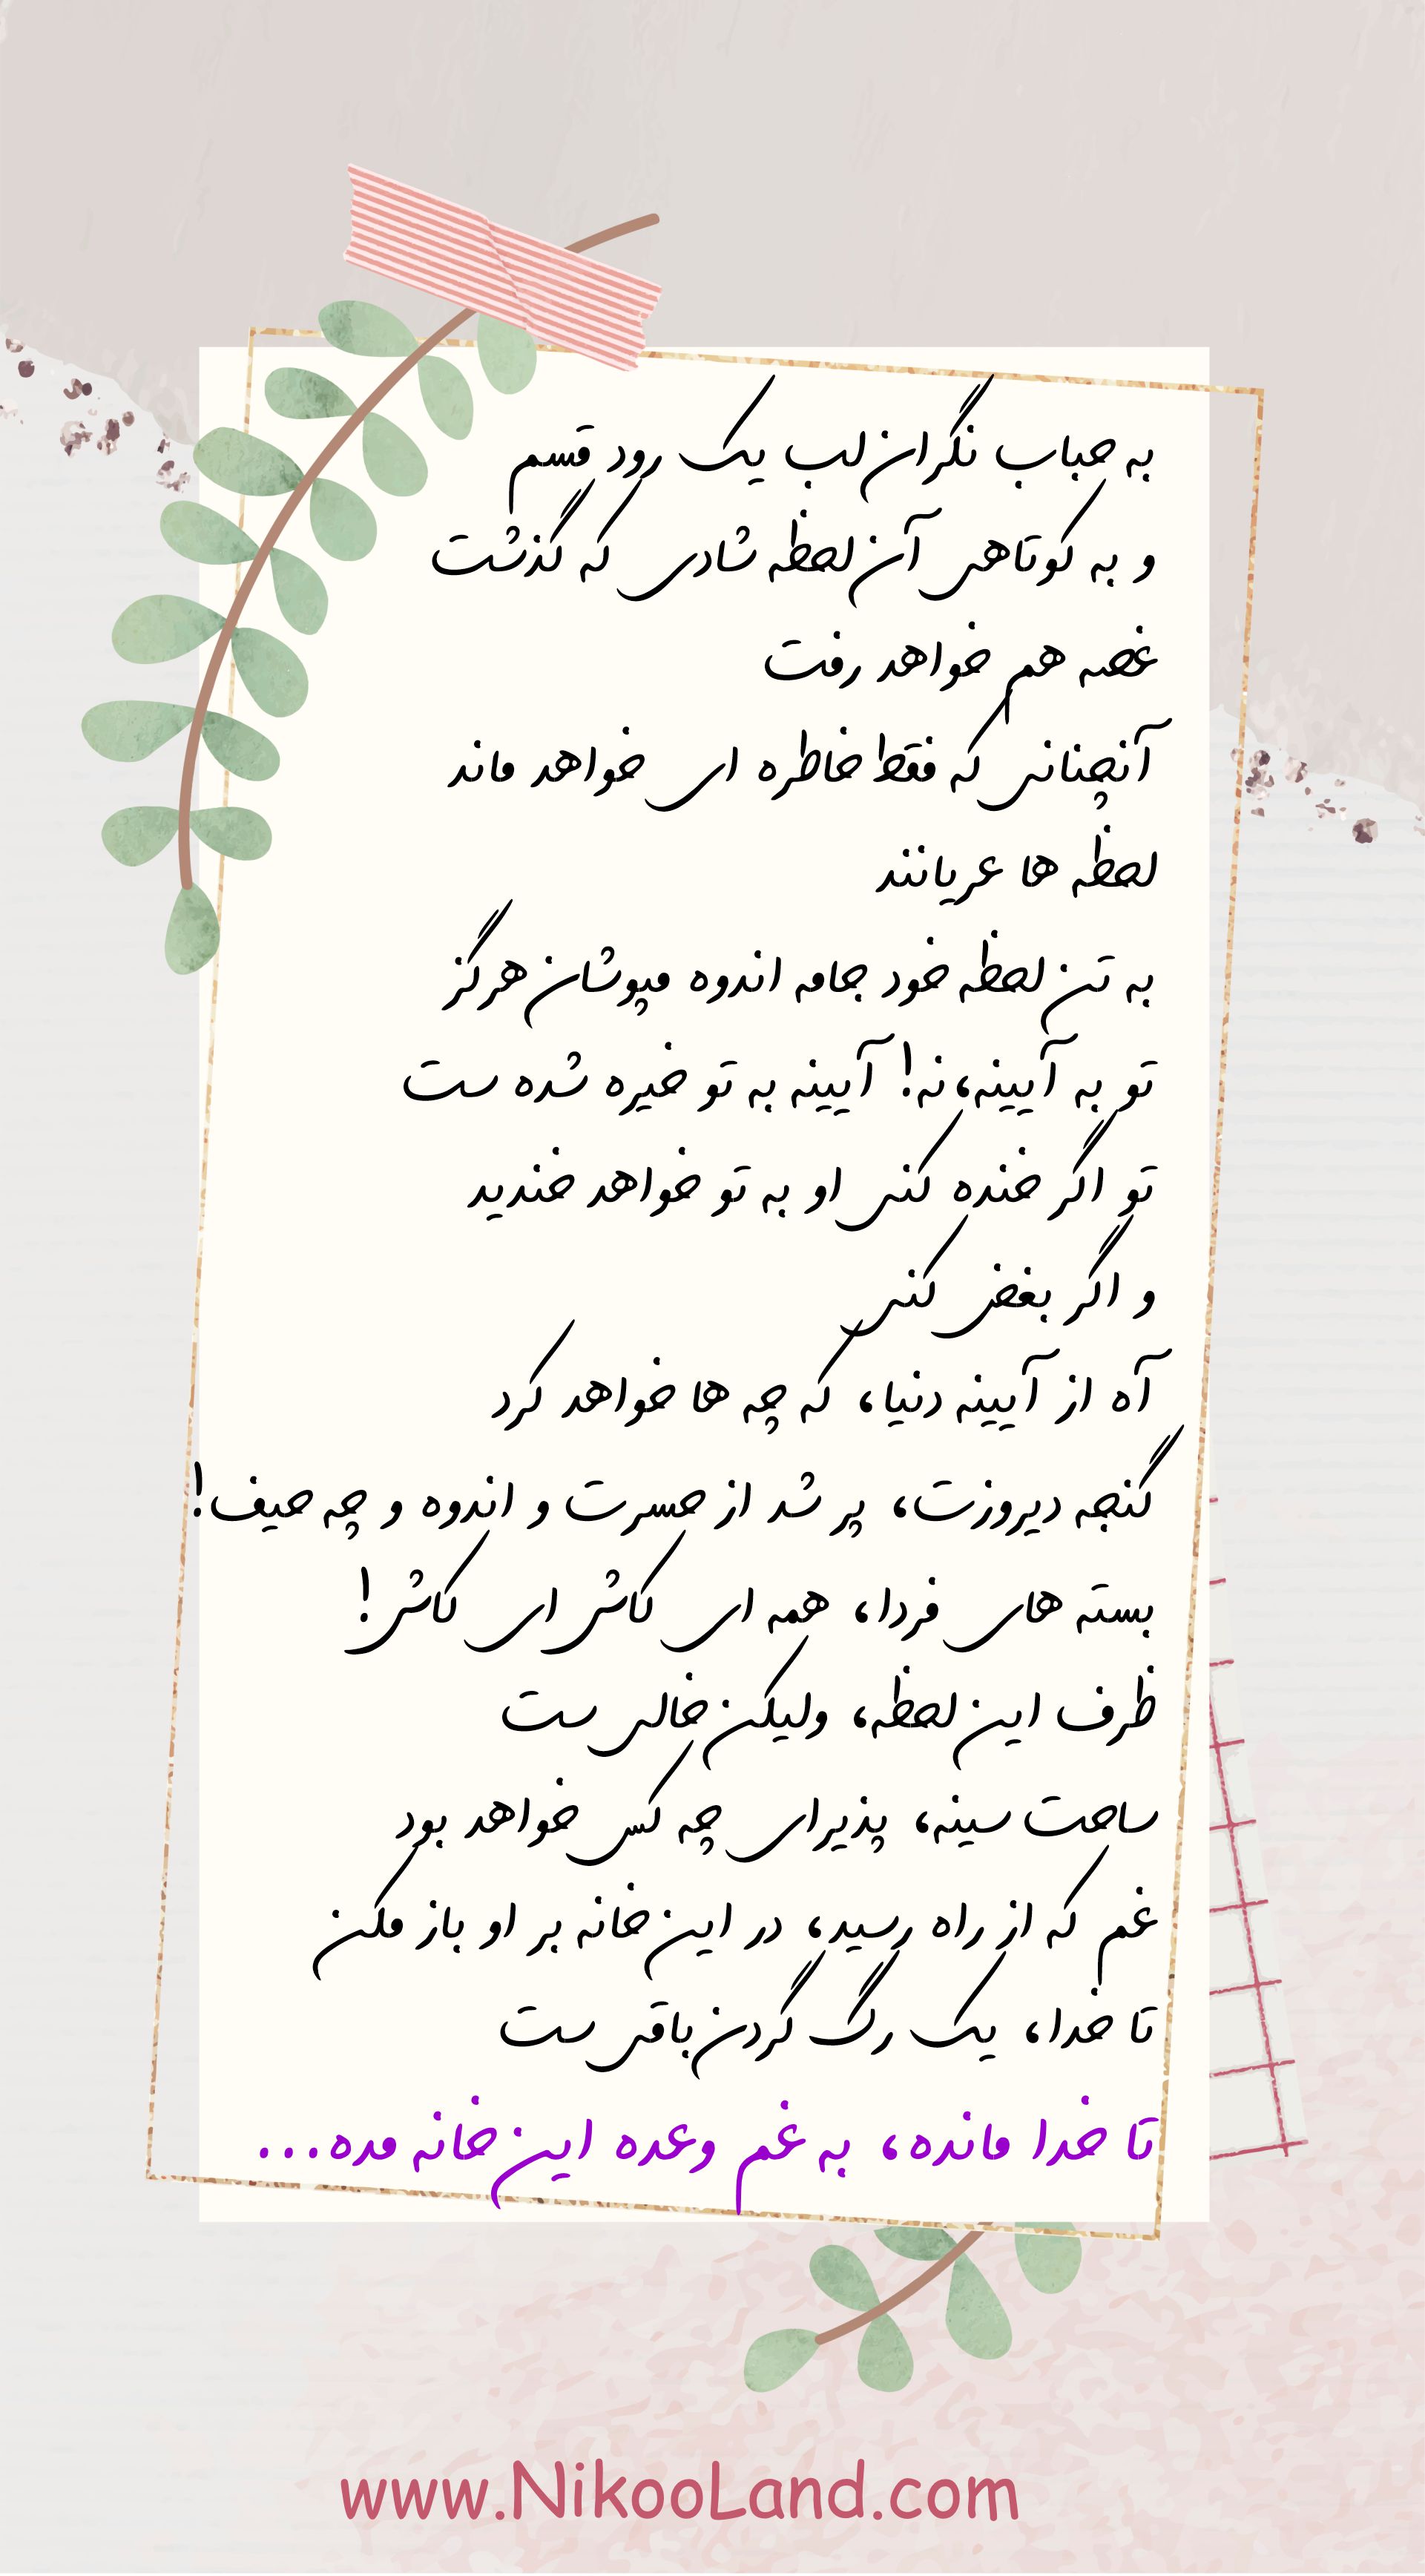 به حباب نگران لب یک رود قسم
و به کوتاهی آن لحظه شادی که گذشت
غصه هم خواهد رفت
آنچنانی که فقط خاطره ای خواهد ماند
لحظه ها عریانند
به تن لحظه خود جامه اندوه مپوشان هرگز
تو به آیینه، نه! آیینه به تو خیره شده ست
تو اگر خنده کنی او به تو خواهد خندید
و اگر بغض کنی
آه از آیینه دنیا، که چه ها خواهد کرد
گنجه دیروزت، پر شد از حسرت و اندوه و چه حیف!
بسته های فردا، همه ای کاش ای کاش!
ظرف این لحظه، ولیکن خالی ست
ساحت سینه، پذیرای چه کس خواهد بود
غم که از راه رسید، در این خانه بر او باز مکن
تا خدا، یک رگ گردن باقی ست
تا خدا مانده، به غم وعده این خانه مده...
www.NikooLand.com